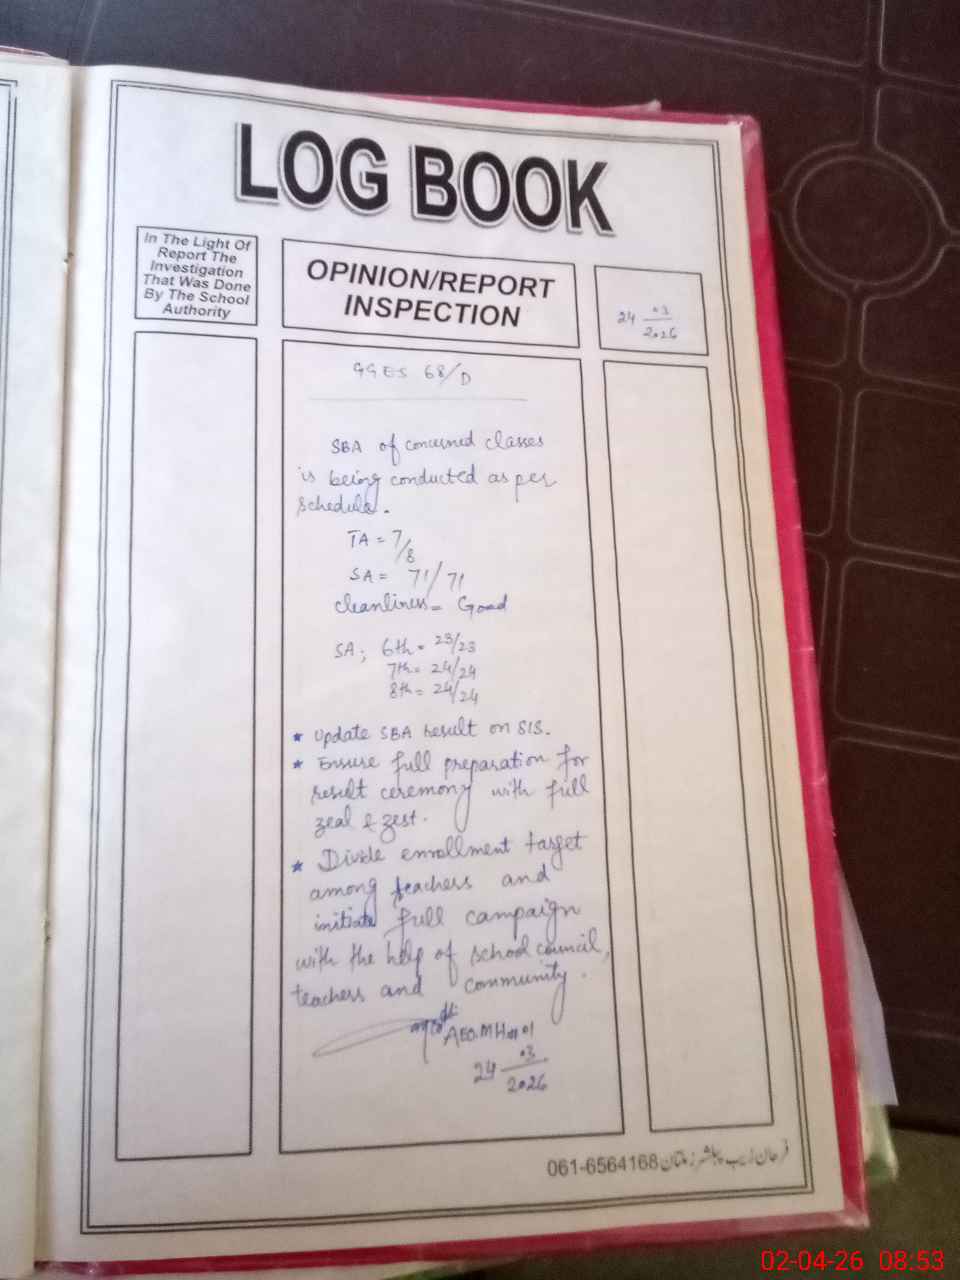 LOG BOOK
In The Light Of
Report The
Investigation
That Was Done
By The School
Authority
OPINION/REPORT
INSPECTION
24 03
2026
GGES 68/D
SBA of concerned classes
is being conducted as per
schedule.
TA = 7/8
SA = 71/71
cleanliness = Good
SA; 6th = 23/23
7th = 24/24
8th = 24/24
* Update SBA result on SIS.
* Ensure full preparation for
result ceremony with full
zeal & zest.
* Divide enrollment target
among teachers and
initiate full campaign
with the help of school council,
teachers and community.
AEO.MH
24 03
2026
061-6564168 فرحان ادیب پبلشرز ملتان
02-04-26 08:53